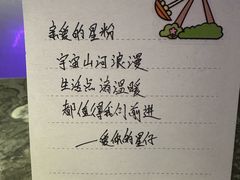 亲爱的星粉
宇宙山河浪漫
生活点滴温暖
都值得我们前进
——爱你的星仔